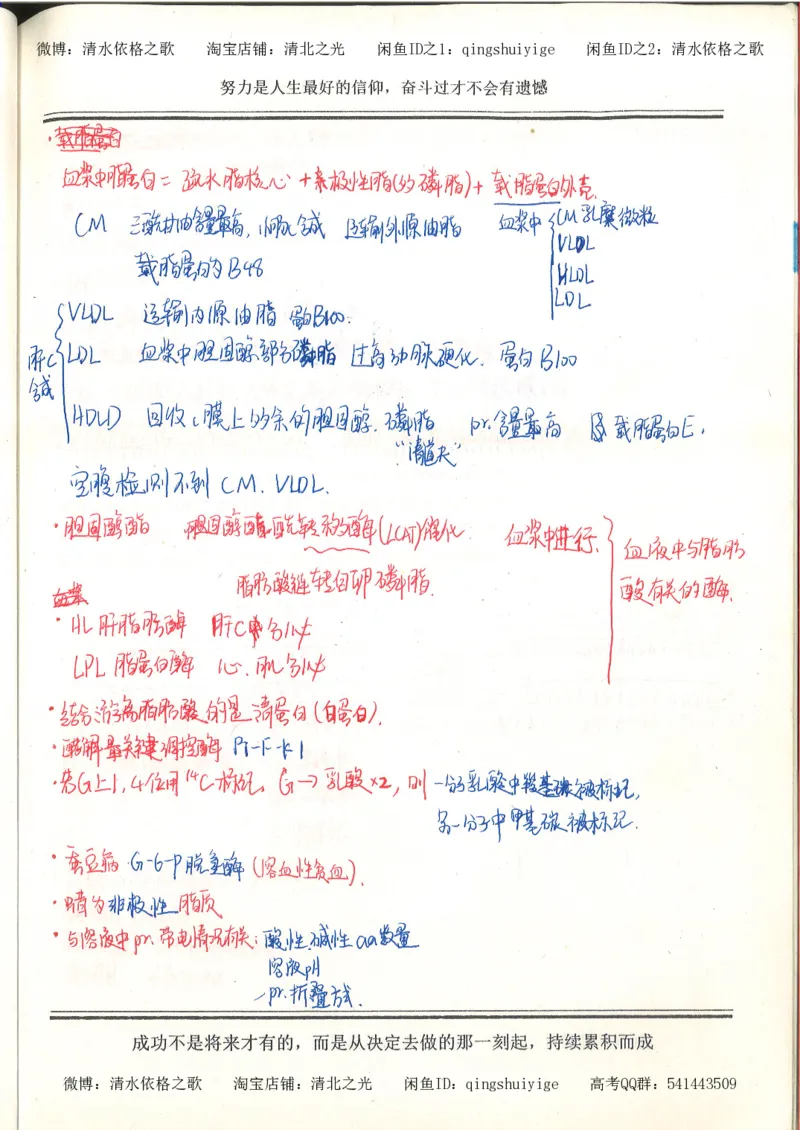 微博：清水依格之歌 淘宝店铺：清北之光 闲鱼ID之1：qingshuiyige 闲鱼ID之2：清水依格之歌
努力是人生最好的信仰，奋斗过才不会有遗憾
·载脂蛋白
血浆中脂蛋白=疏水脂核心+亲极性脂(的磷脂)+载脂蛋白外壳.
CM 三酰甘油含量最高, 小肠c合成 运输外源油脂 血浆中 CM 乳糜微粒
载脂蛋白为B48 VLDL
HLDL
LDL
肝c合成
VLDL 运输内源油脂 蛋白B100.
LDL 血浆中胆固醇部分磷脂 过高动脉硬化. 蛋白B100
HDLD 回收c膜上的余的胆固醇. 磷脂 pr.含量最高 载脂蛋白E,
"清道夫"
空腹检测不到 CM. VLDL.
·胆固醇酯 胆固醇酰转移酶(LCAT)催化 血浆中进行. 血液中与脂肪
脂肪酸链转自卵磷脂. 酸有关的酶.
血浆
·HL 肝脂肪酶 肝c 分泌
LPL 脂蛋白酶 心.肌分泌
·结合游离脂肪酸的是清蛋白(白蛋白).
·酵解最关键调控酶 Pi-F-k1
·若G上1,4位用14C标记, G→乳酸×2, 则一分子乳酸中羧基碳被标记,
另一分子中甲基碳被标记.
·蚕豆病 G-6-P脱氢酶 (溶血性贫血).
·蜡为非极性脂质
·与溶液中pr.带电情况有关: 酸性.碱性aa数量
溶液pH
pr.折叠方式.
成功不是将来才有的，而是从决定去做的那一刻起，持续累积而成
微博：清水依格之歌 淘宝店铺：清北之光 闲鱼ID：qingshuiyige 高考QQ群：541443509